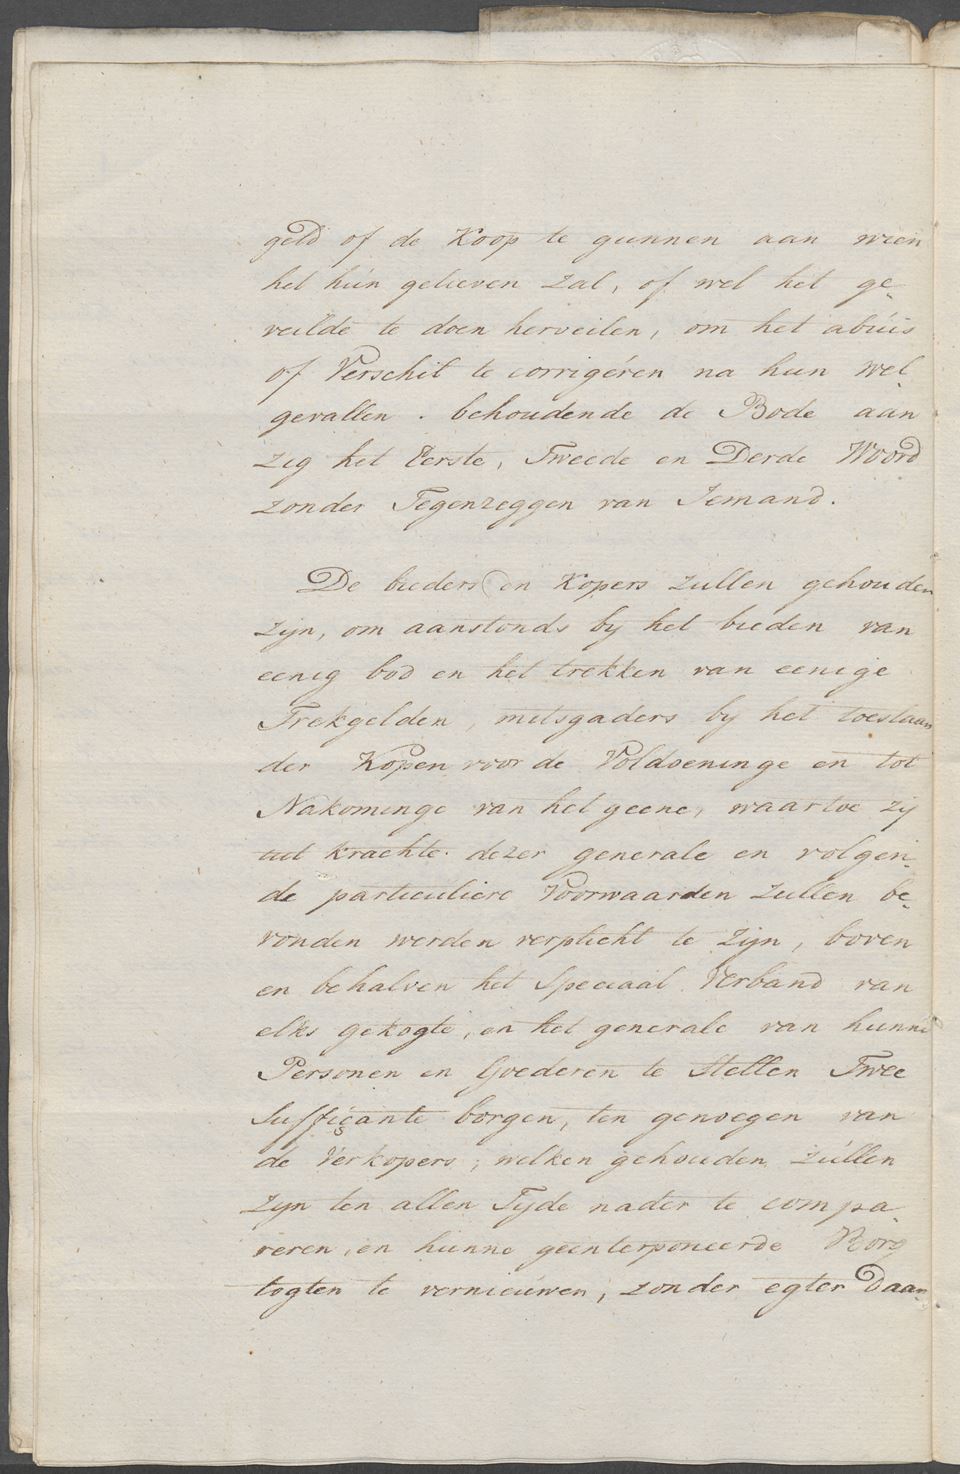 geld of de Koop te gunnen aan wien
het hún gelieven zal, of wel het ge„
veilde te doen herveilen, om het abúis
of Verschil te corrigéren na hun wel„
gevallen. behoudende de Bode aan
zig het Eerste, Tweede en Derde Woord
zonder Tegenzeggen van Iemand.
De bieders en Kopers zullen gehouden
zijn, om aanstonds by het bieden van
eenig bod en het trekken van eenige
Trekgelden, mitsgaders by het toeslaan
der Kopen voor de Voldoeninge en tot
Nakominge van het geene, waartoe zij
uit krachte dezer generale en volgen„
de particuliere Voorwaarden zullen be„
vonden werden verplicht te zijn, boven
en behalven het Speciaal Verband van
elks gekogte, en het generale van hunne
Personen en Goederen te Stellen Twee
Suffiçante borgen, ten genoegen van
de Verkopers, welken gehouden zúllen
zyn ten allen Tyde nader te compa„
reren, en hunne geinterponeerde Borg
togten te vernieúwen, zonder egter daan